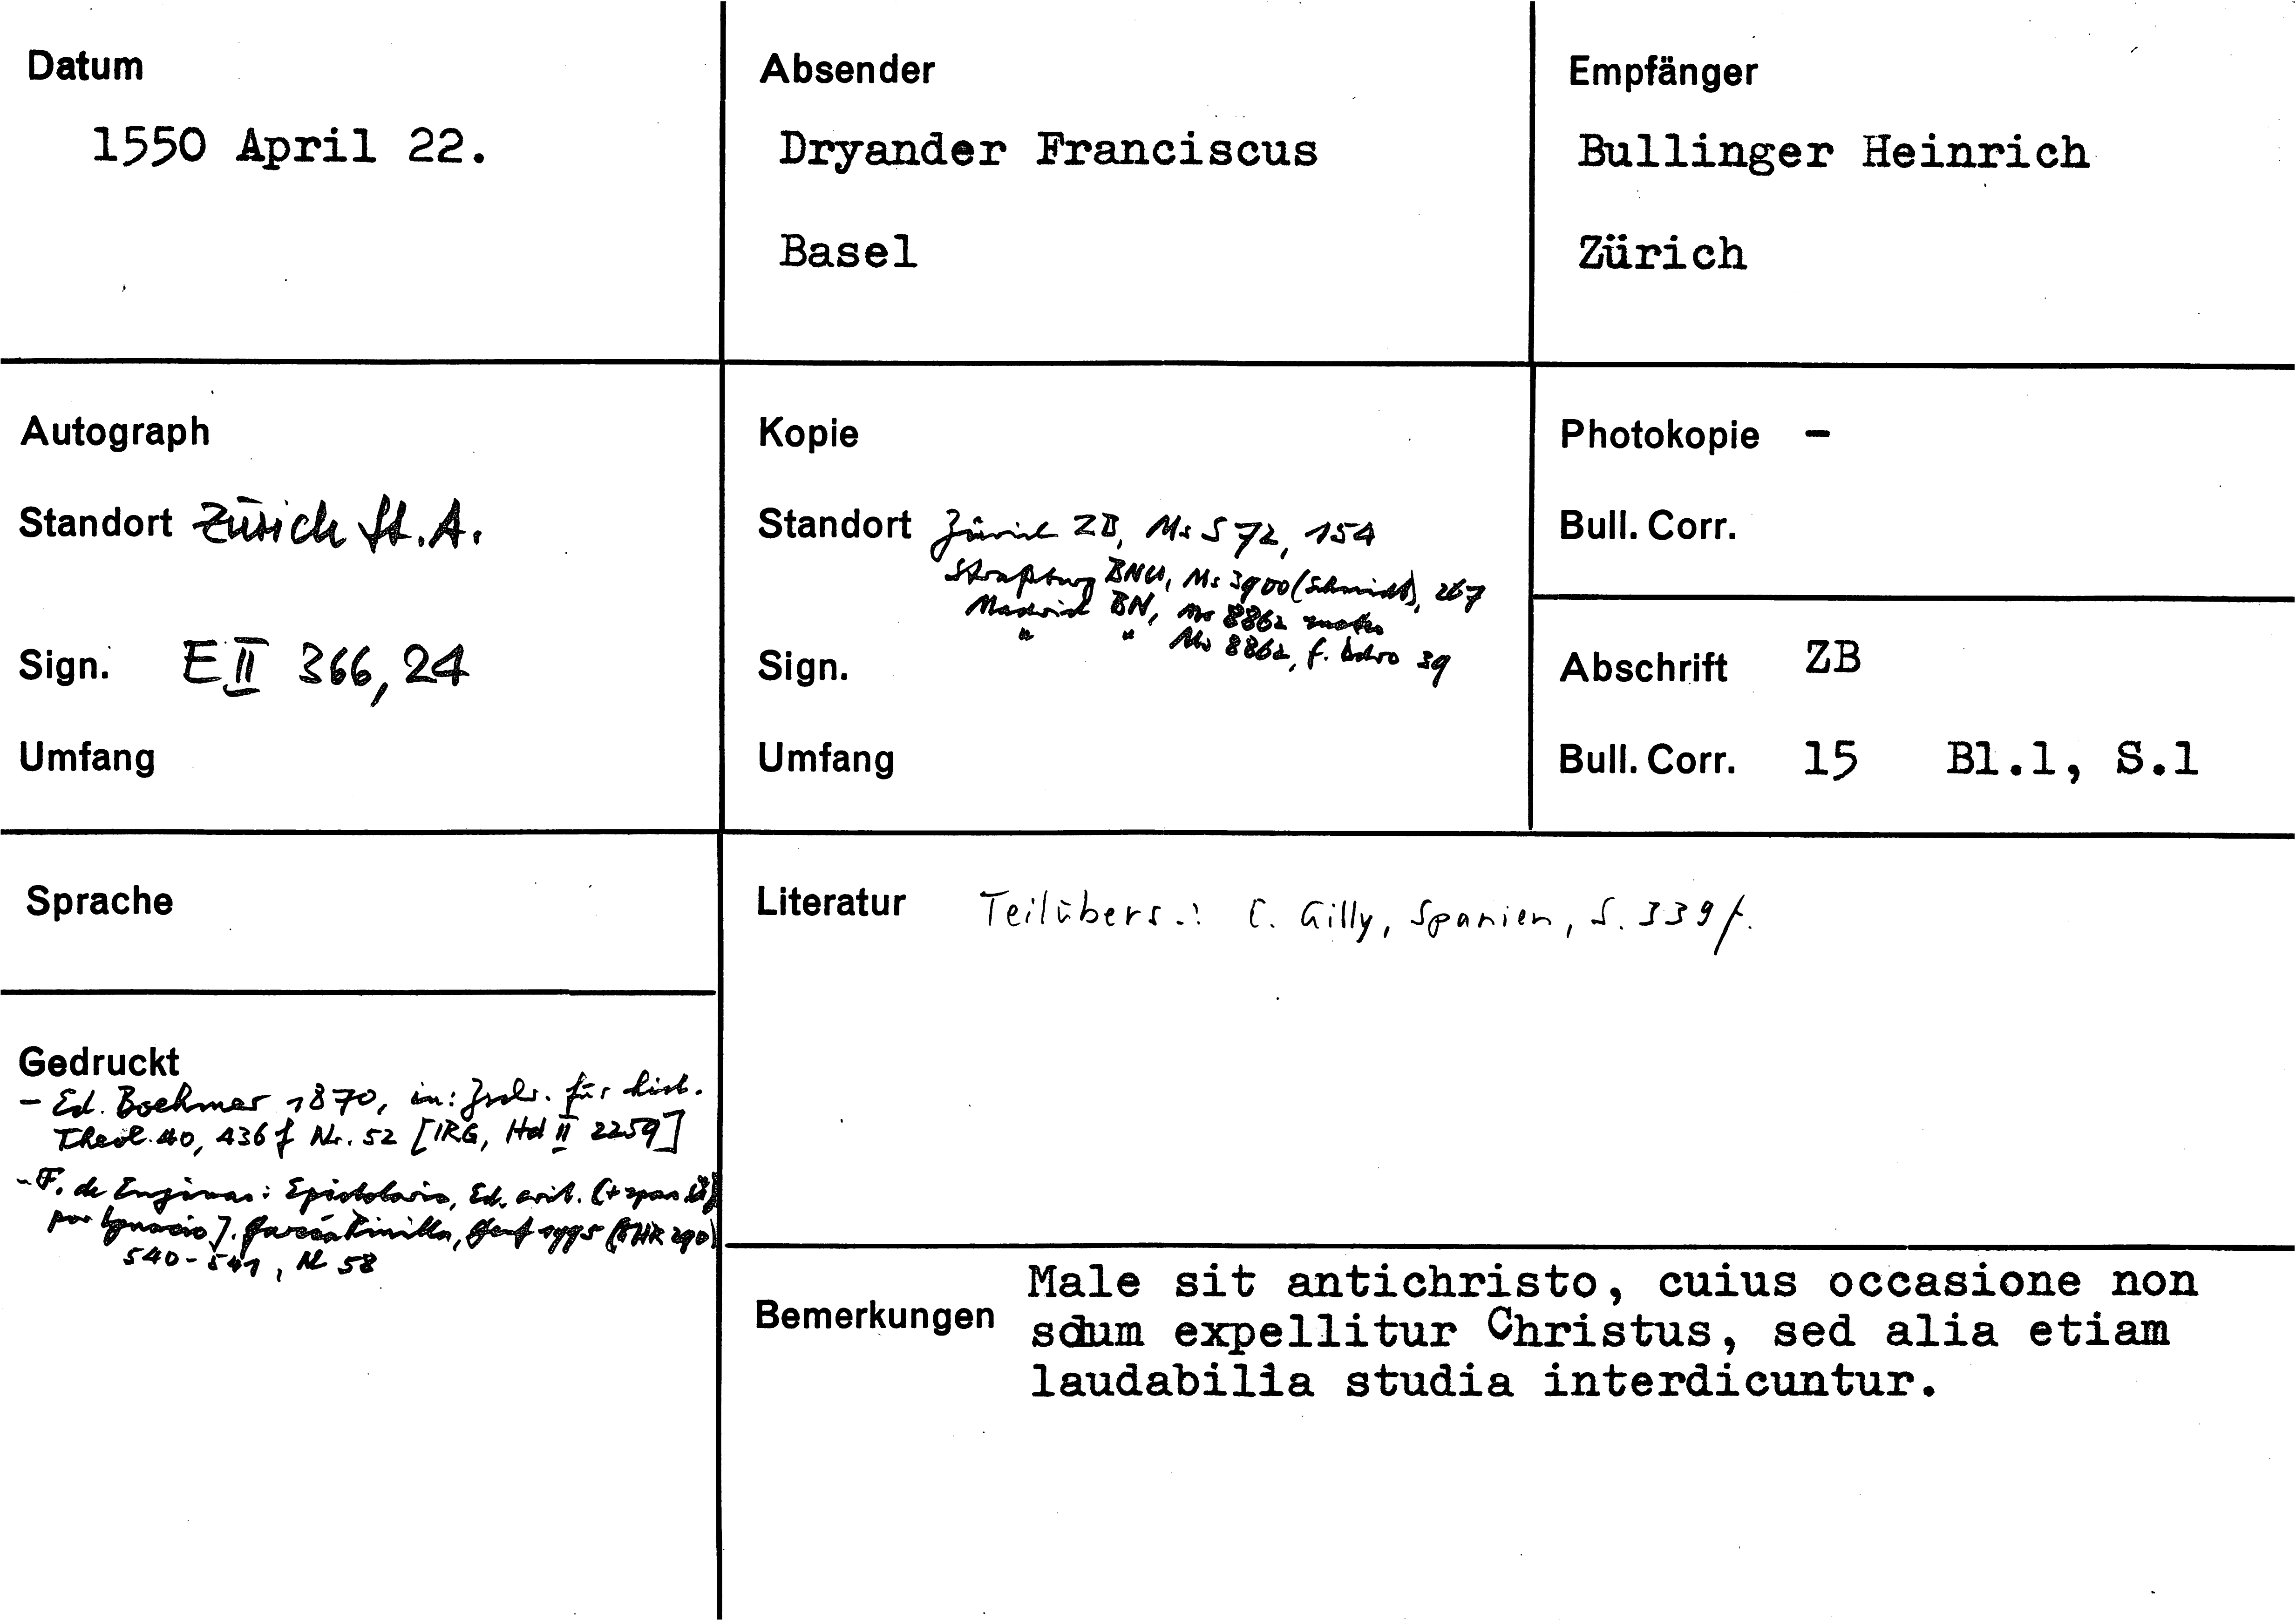 Datum
1550 April 22.
Absender
Dryander Franciscus
Basel
Empfänger
Bullinger Heinrich
Zürich
Autograph
Standort Zürich St.A.
Sign. E II 366, 24
Umfang
Kopie
Standort Zürich ZB, Ms S 72, 154
Straßburg BNU, Ms 3900 (Schmidt), 267
Madrid BN, Ms 8862
" " Ms 8862, f. 39
Sign.
Umfang
Photokopie -
Bull. Corr.
Abschrift ZB
Bull. Corr. 15 Bl.1, S.1
Sprache
Gedruckt
- Ed. Boehmer 1870, in: Zschr. für hist.
Theol. 40, 436 f Nr. 52 [IRG, Hd II 2259]
- F. de Enzinas: Epistolario, Ed. crit. (+ span Ü)
por Ignacio J. García Pinilla, Genf 1995 (THR 290)
540-541, Nr 58
Literatur Teilübers.: C. Gilly, Spanien, S. 339f.
Bemerkungen
Male sit antichristo, cuius occasione non
sdum expellitur Christus, sed alia etiam
laudabilia studia interdicuntur.